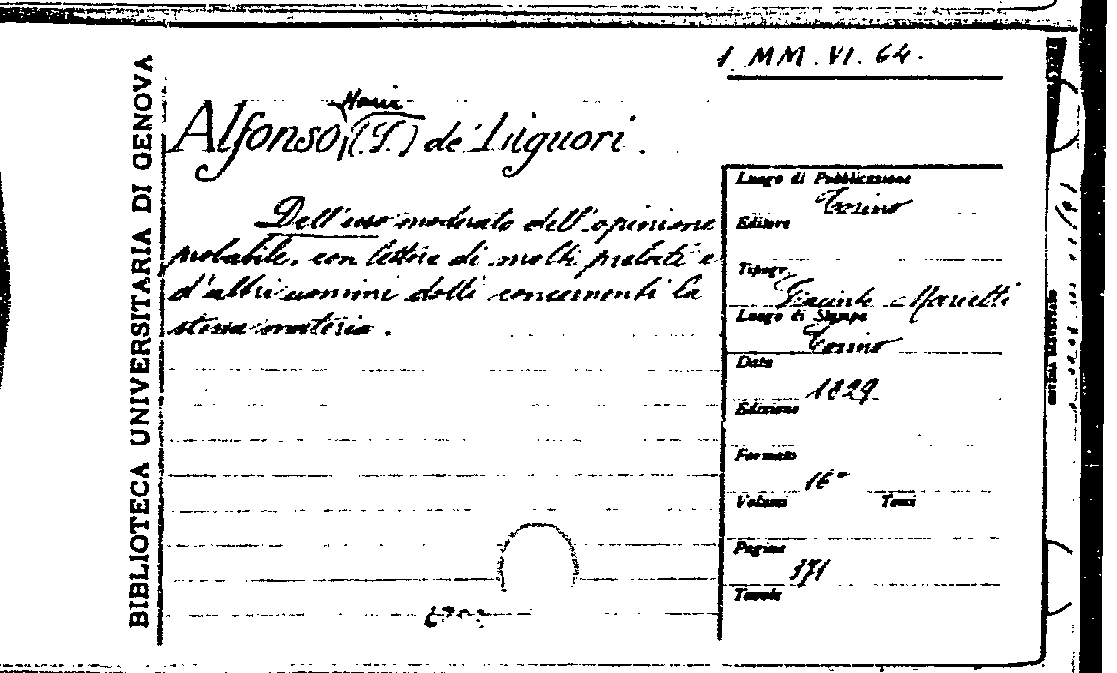 1 MM.VI.64.
BIBLIOTECA UNIVERSITARIA DI GENOVA
Maria
Alfonso (S.) de' Liguori.
Dell'uso moderato dell'opinione
probabile, con lettere di molti prelati e
d'altri uomini dotti concernenti la
stessa materia.
Luogo di Pubblicazione
Torino
Editore
Tipogr.
Giacinto Marietti
Luogo di Stampa
Torino
Data
1829
Edizione
Formato
16°
Volumi Tomi
Pagine
371
Tavole